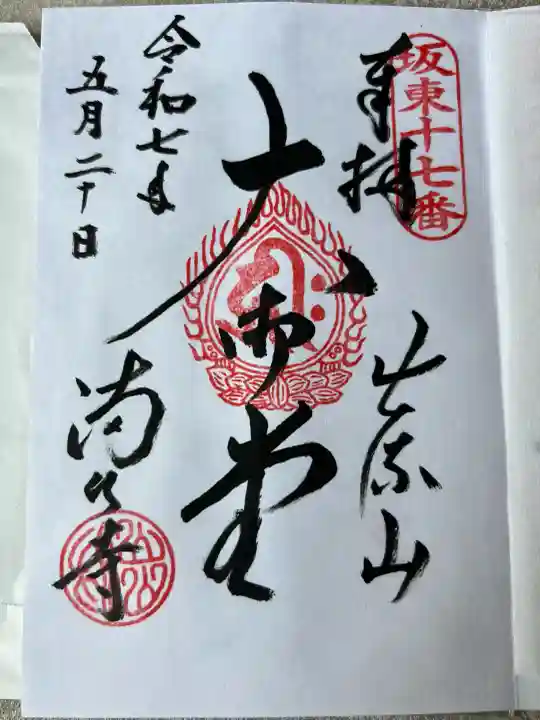 坂東十七番
奉拝
出流山
大御堂
令和七年
五月二十日
満願寺